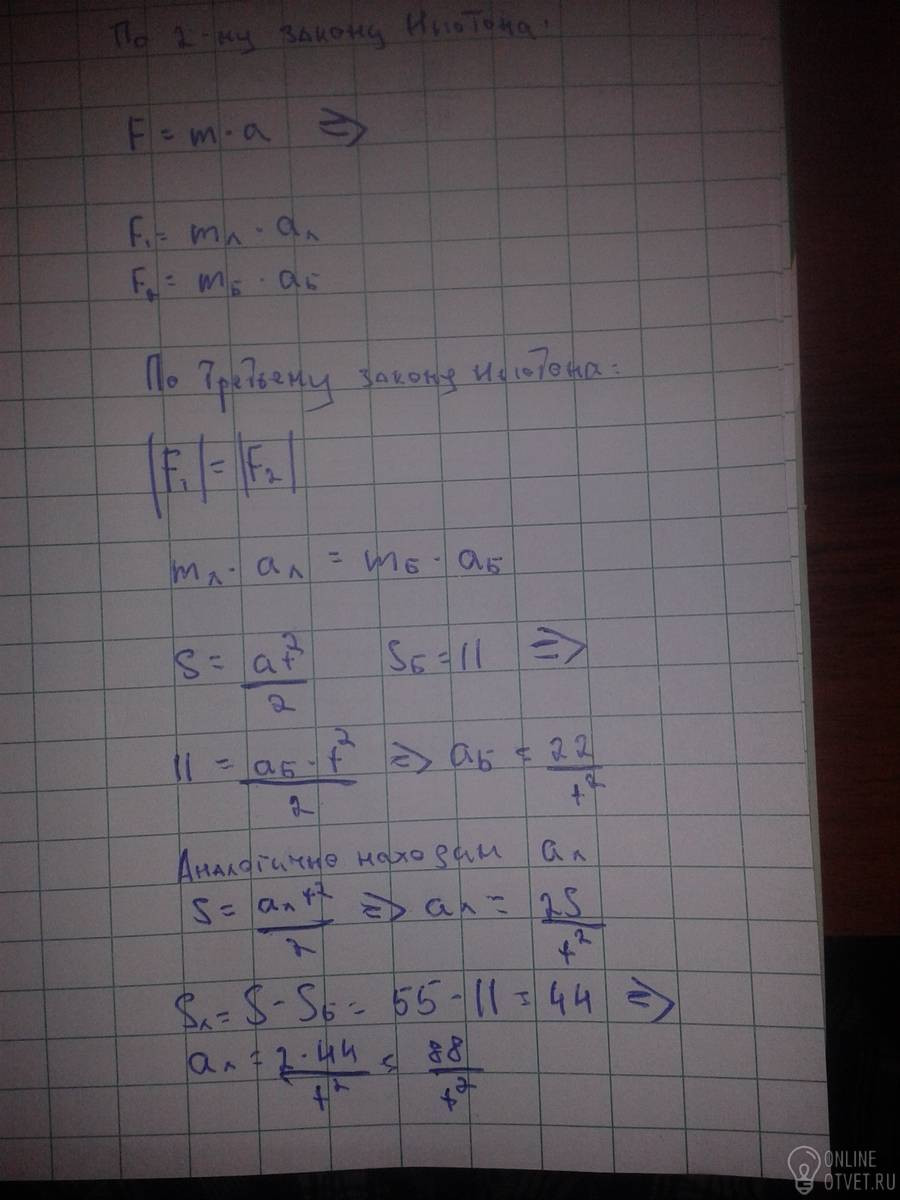 По 2-му закону Ньютона:
F = m · a ⇒
F₁ = mл · aл
F₂ = mБ · aБ
По третьему закону Ньютона:
|F₁| = |F₂|
mл · aл = mБ · aБ
S = at²/2 SБ = 11 ⇒
11 = aБ · t²/2 ⇒ aБ = 22/t²
Аналогично находим aл
S = aл t²/2 ⇒ aл = 2S/t²
Sл = S - SБ = 55 - 11 = 44 ⇒
aл = 2·44/t² = 88/t²
ONLINE
OTVET.RU